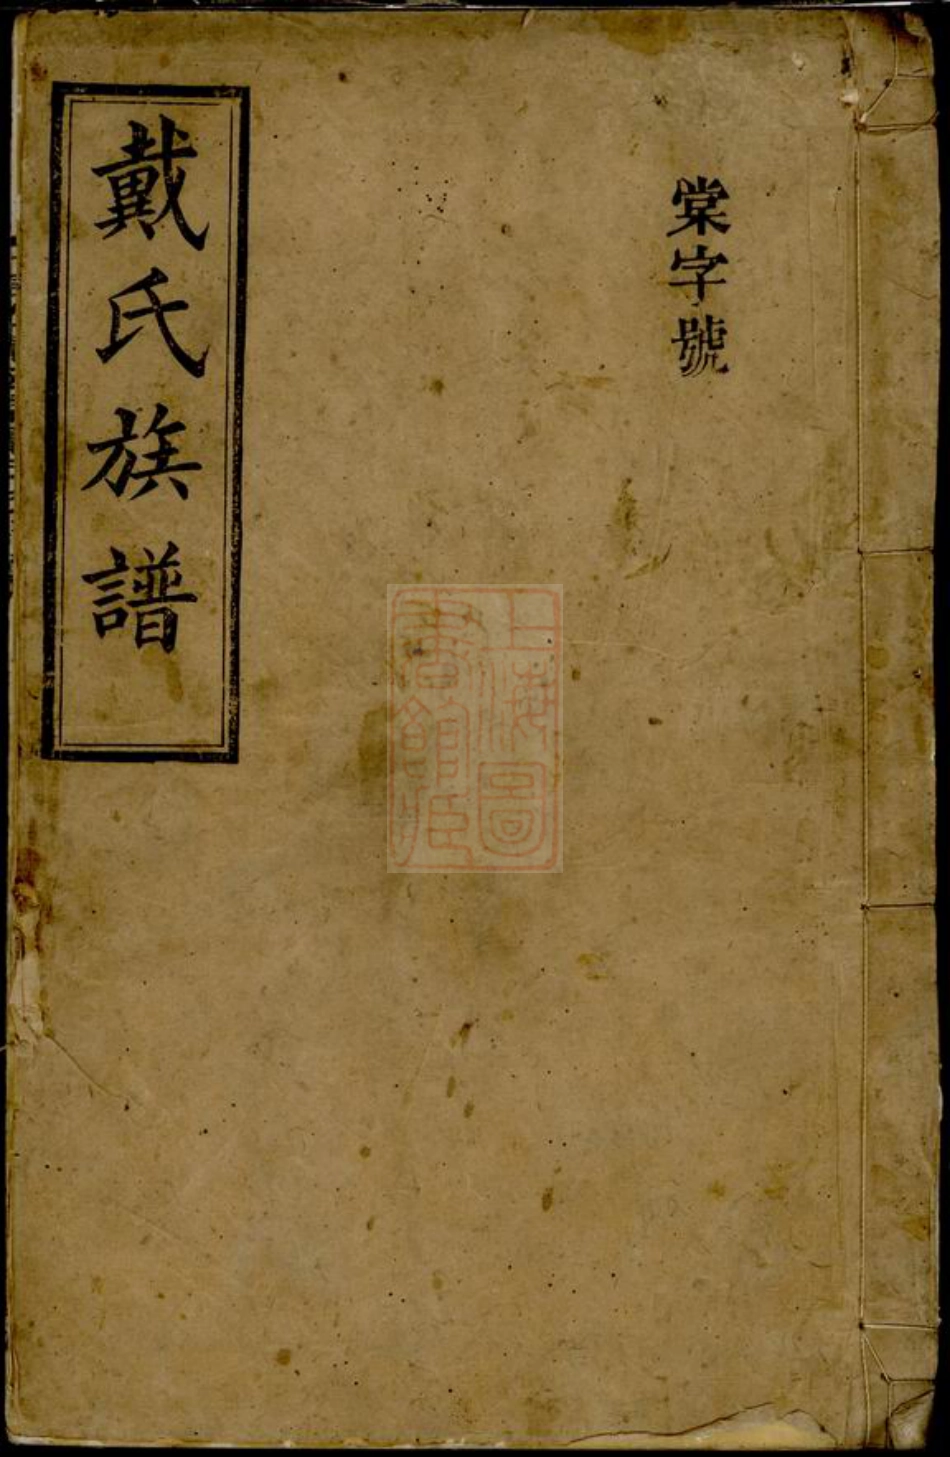 棠字號
戴氏族譜
上海圖
書館藏